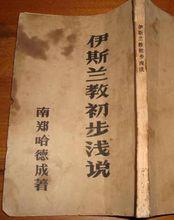 伊斯兰教初步浅说
南郑哈德成著
伊斯兰教初步浅说